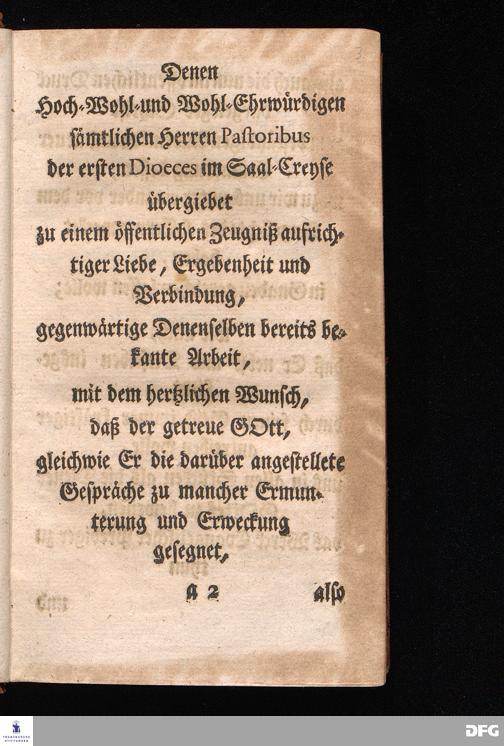 3.
Denen
Hoch-Wohl-und Wohl-Ehrwürdigen
sämtlichen Herren Pastoribus
der ersten Dioeces im Saal-Creyse
übergiebet
zu einem öffentlichen Zeugniß aufrich-
tiger Liebe, Ergebenheit und
Verbindung,
gegenwärtige Denenselben bereits be-
kante Arbeit,
mit dem hertzlichen Wunsch,
daß der getreue GOtt,
gleichwie Er die darüber angestellete
Gespräche zu mancher Ermun-
terung und Erweckung
gesegnet,
a 2 also
FRANCKESCHE
STIFTUNGEN
DFG